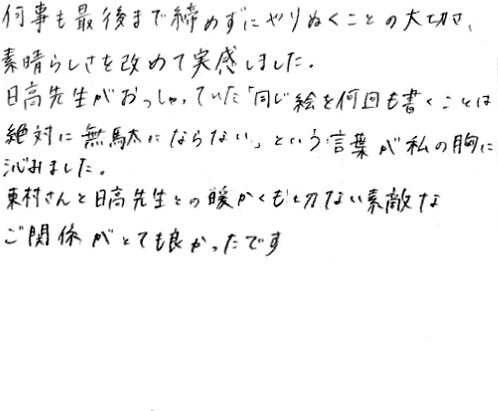 何事も最後まで締めずにやりぬくことの大切さ、
素晴らしさを改めて実感しました。
日高先生がおっしゃっていた「同じ絵を何回も書くことは
絶対に無駄にならない」という言葉が私の胸に
沁みました。
東村さんと日高先生との暖かくも切ない素敵な
ご関係がとても良かったです